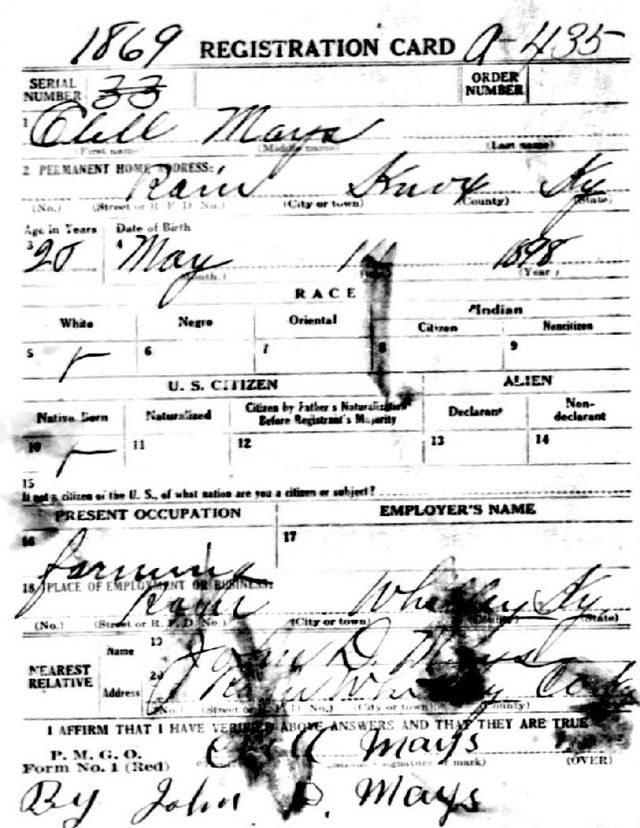 1869 REGISTRATION CARD A-435
SERIAL NUMBER 33 ORDER NUMBER
1 Clell Mays
(First name) (Middle name) (Last name)
2 PERMANENT HOME ADDRESS:
Rain Knox Ky
(No.) (Street or R. F. D. No.) (City or town) (County) (State)
Age in Years Date of Birth
3 20 4 May 1898
(Month.) (Year)
RACE
White Negro Oriental Indian
Citizen Noncitizen
5 6 7 8 9
U. S. CITIZEN ALIEN
Native Born Naturalized Citizen by Father's Naturalization Before Registrant's Majority Declarant Non-declarant
10 11 12 13 14
15
If not a citizen of the U. S., of what nation are you a citizen or subject?
PRESENT OCCUPATION EMPLOYER'S NAME
16 17
farming
18 PLACE OF EMPLOYMENT OR BUSINESS:
Rain Whitley Ky
(No.) (Street or R. F. D. No.) (City or town) (County) (State)
NEAREST RELATIVE
Name 19 John D. Mays
Address 20 Rain Whitley
(No.) (Street or R. F. D. No.) (City or town) (County)
I AFFIRM THAT I HAVE VERIFIED ABOVE ANSWERS AND THAT THEY ARE TRUE
P. M. G. O.
Form No. 1 (Red) Mays
signature or mark) (OVER)
By John D. Mays